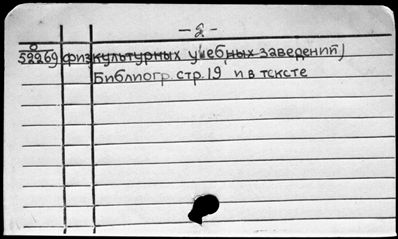 - 2 -
52269 физкультурных учебных заведений)
Библиогр. стр. 19 и в тексте